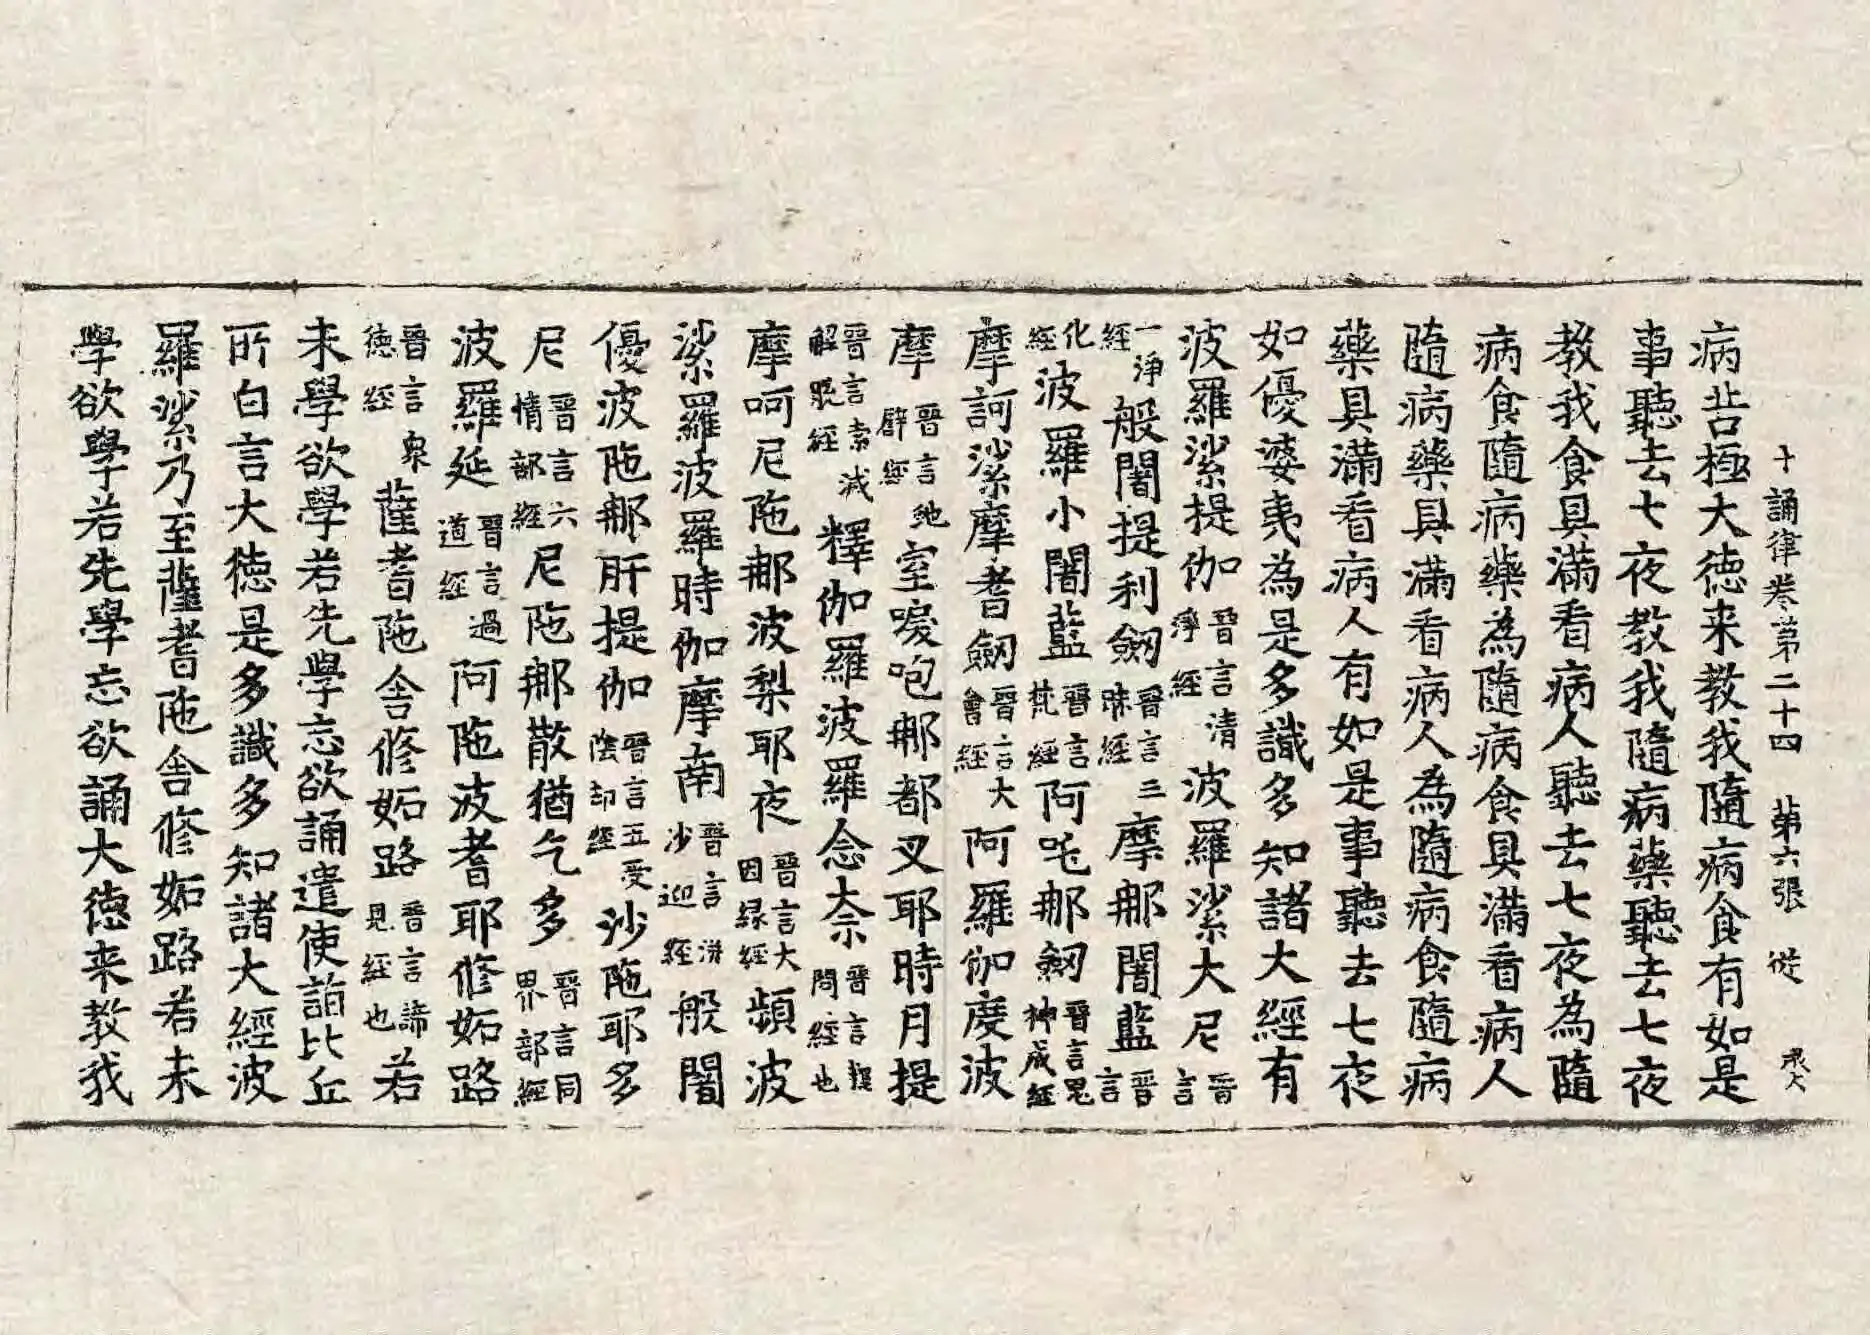 十誦律卷第二十四　第六張　從
病苦極大德来教我隨病食有如是
事聽去七夜教我隨病藥聽去七夜
教我食具滿看病人聽去七夜為隨
病食隨病藥為隨病食具滿看病人
隨病藥具滿看病人為隨病食隨病
藥具滿看病人有如是事聽去七夜
如優婆夷為是多識多知諸大經有
波羅㲚提伽晉言清淨經波羅㲚大尼晉言
一淨經般闍提利劒晉言三昧經摩那闍藍晉言
化經波羅小闍藍晉言梵經阿吒那劒晉言鬼神成經
摩訶㲚摩耆劒晉言大會經阿羅伽度波
摩晉言虵譬經室嗳咆那都叉耶時月提
晉言索滅解脫經釋伽羅波羅念柰晉言釋問經也
摩呵尼陁那波梨耶夜晉言大因緣經頻波
㲚羅波羅時伽摩南晉言洴沙迎經般闍
優波陁那肝提伽晉言五受陰却經沙陁耶多
尼晉言六情部經尼陁那散猶乞多晉言同界部經
波羅延晉言過道經阿陁波耆耶修妬路
晉言衆德經薩耆陁舍修妬路晉言諦見經也若
未學欲學若先學忘欲誦遣使詣比丘
所白言大德是多識多知諸大經波
羅㲚乃至薩耆陁舍修妬路若未
學欲學若先學忘欲誦大德来教我